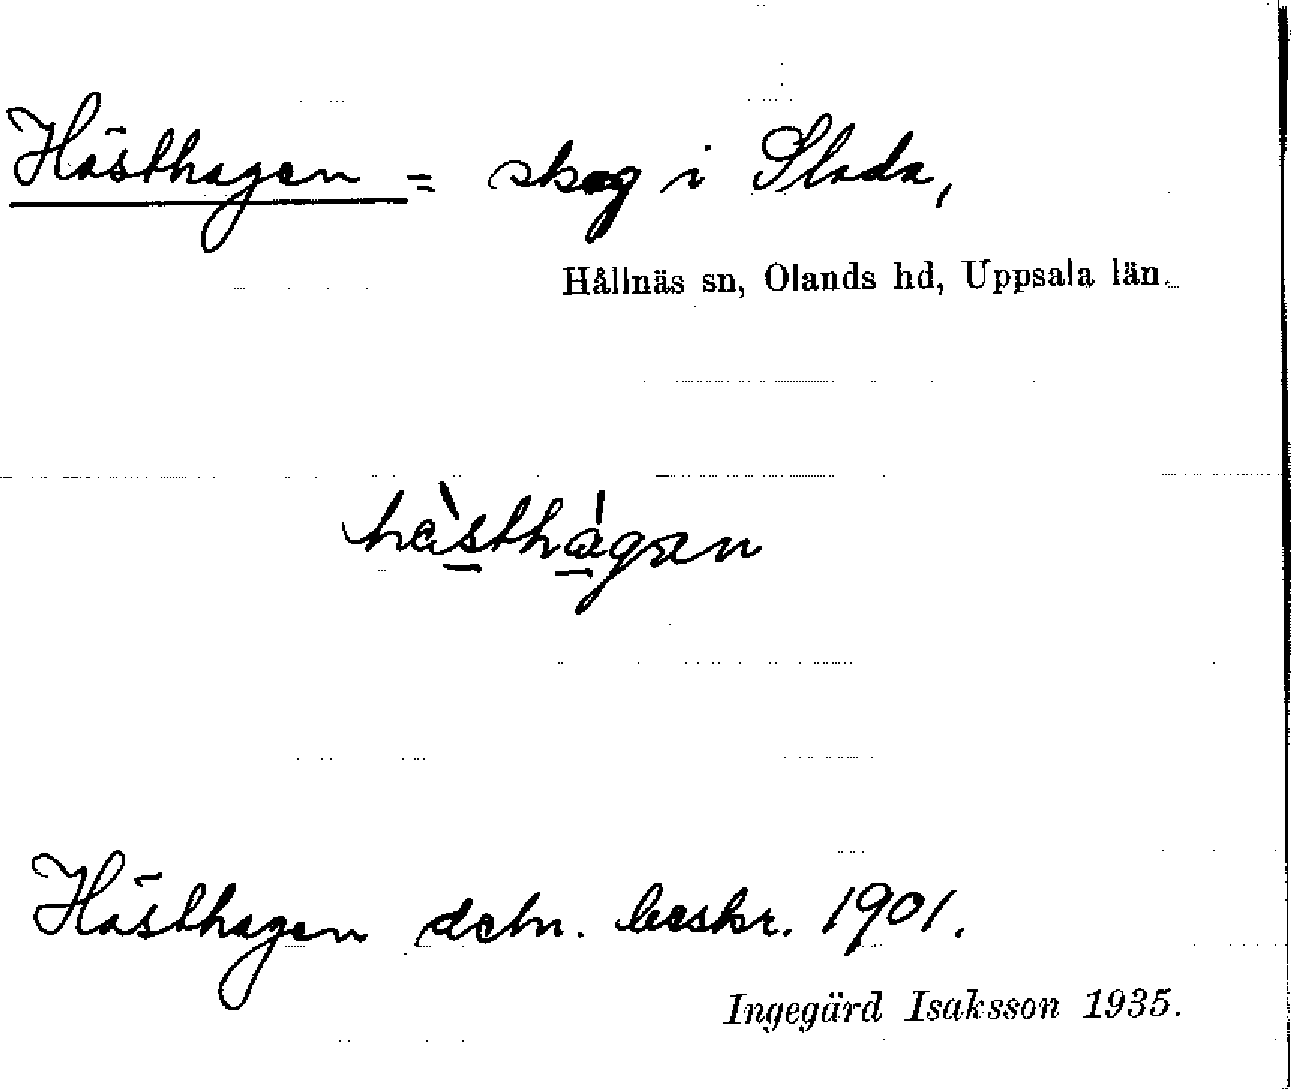 Hästhagen = skog i Slada,
Hållnäs sn, Olands hd, Uppsala län.
hästhagen
Hästhagen dctn. beskr. 1901.
Ingegärd Isaksson 1935.